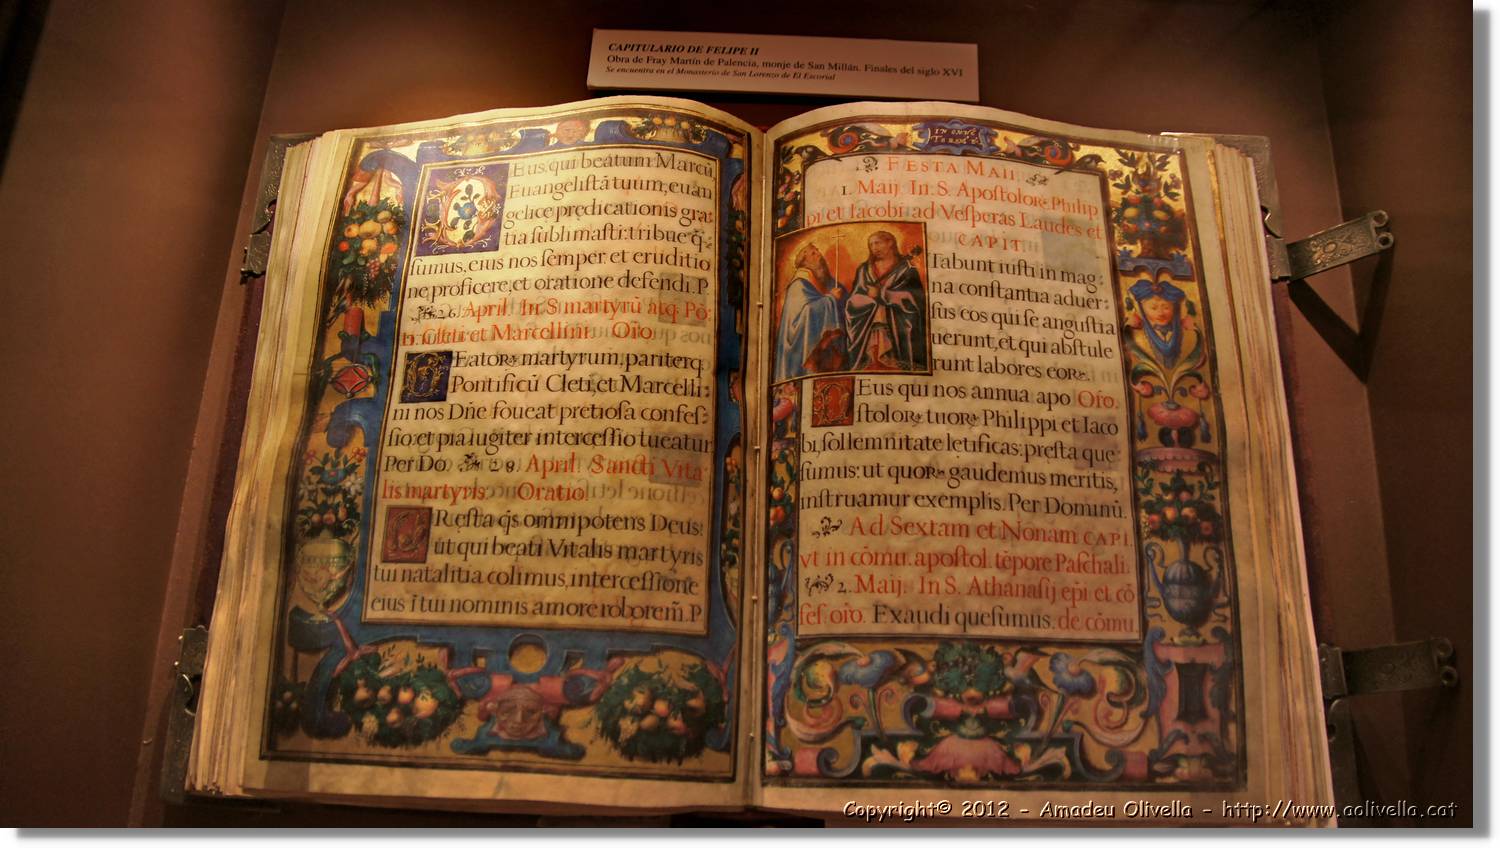 CAPITULARIO DE FELIPE II
Obra de Fray Martín de Palencia, monje de San Millán. Finales del siglo XVI
Se encuentra en el Monasterio de San Lorenzo de El Escorial
DEus, qui beatum Marcũ,
Euangelistã tuum, euan
gelice prędicationis gra:
tia sublimasti: tribue q̃:
sumus, eius nos semper, et eruditio
ne, proficere, et oratione defendi. P
26. April. In S. martyrũ atq. Põ:
Cleti et Marcellini. Orõ
BEatorꝝ martyrum, pariterq.
Pontificũ Cleti, et Marcelli:
ni nos Dñe foueat pretiosa confes:
sio: et pia iugiter intercessio tueatur
Per Do. 28. April. Sancti Vita:
lis martyris. Oratio
PRęsta q̃s omnipotens Deus:
ut qui beati Vitalis martyris
tui natalitia colimus, intercessione
eius ĩ tui nominis amore roborem̃. P
FESTA MAII.
1. Maij. In. S. Apostolorꝝ Philip
pi et Iacobi ad Vesperas Laudes et
CAPIT.
STabunt iusti in mag:
na constantia aduer:
sus eos qui se angustia
uerunt, et qui abstule
runt labores eorꝝ.
DEus qui nos annua apo Orõ.
stolorꝝ tuorꝝ Philippi et Iaco
bi, sollemnitate letificas: pręsta que
sumus: ut quorꝝ gaudemus meritis,
instruamur exemplis. Per Dominũ.
Ad Sextam et Nonam CAPI.
vt in cõmu. apostol. tẽpore Paschali.
2. Maij. In S. Athanasij epi et cõ
fes. orõ. Exaudi quesumus. de cõmu
Copyright© 2012 - Amadeu Olivella - http://www.aolivella.cat